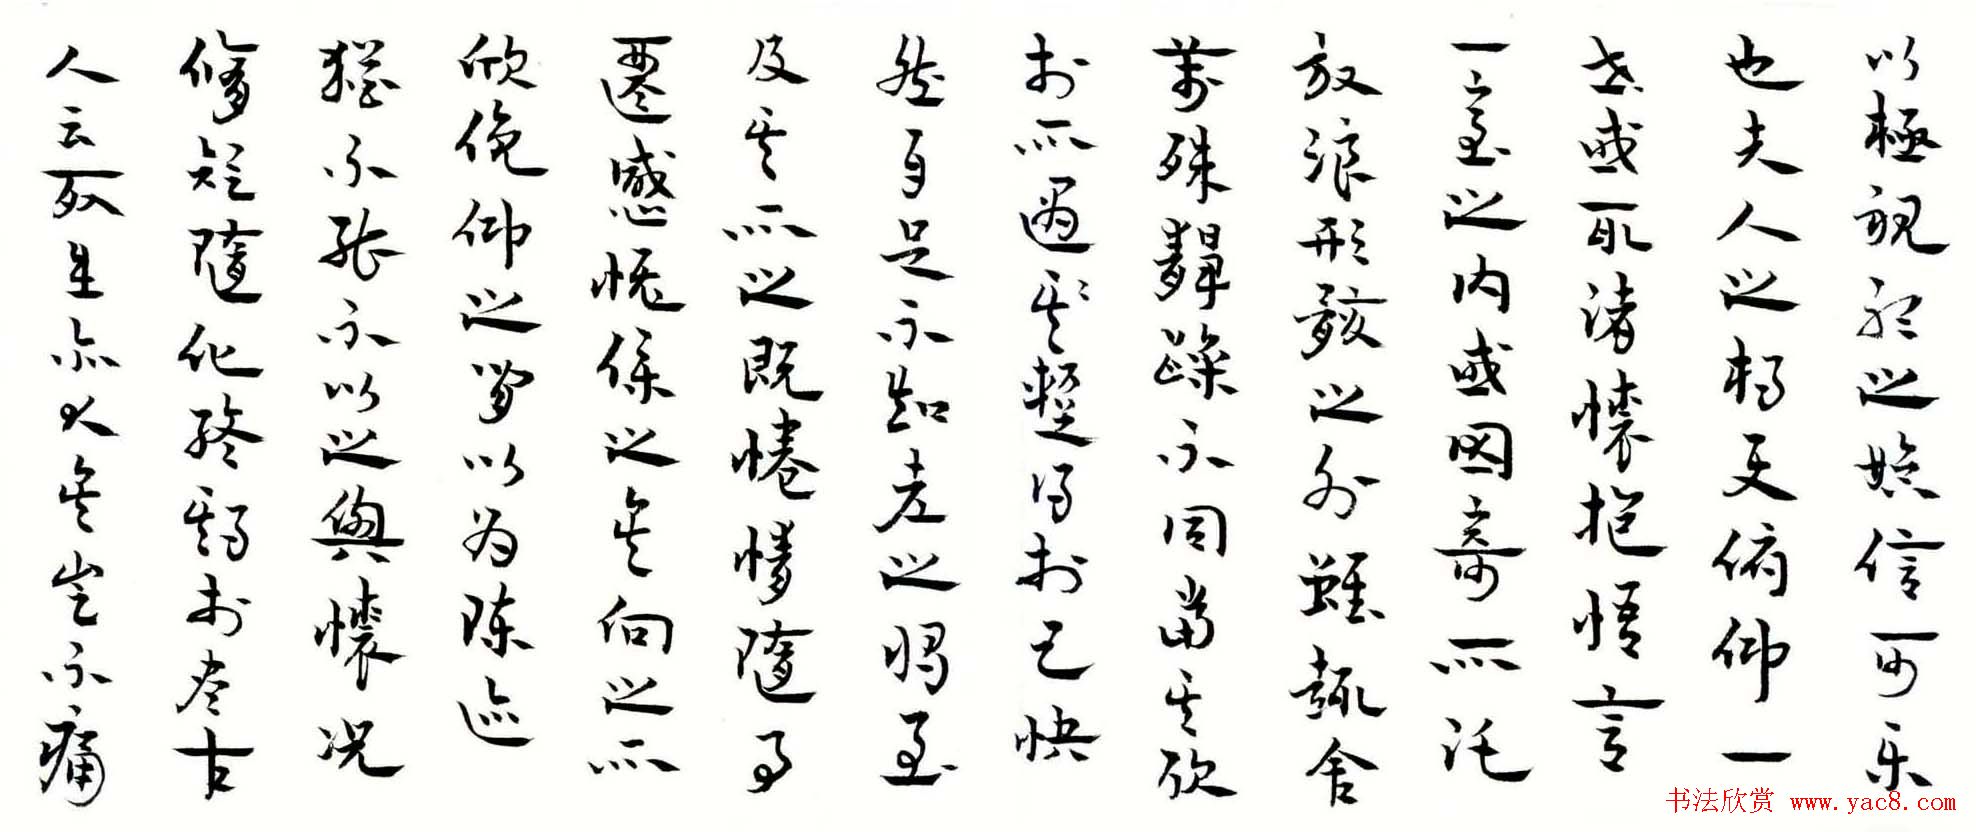 以極視聽之娛信可乐
也夫人之相与俯仰一
世或取諸懷抱悟言
一室之内或因寄所託
放浪形骸之外雖趣舍
萬殊靜躁不同當其欣
於所遇暫得於己快
然自足不知老之將至
及其所之既惓情隨事
遷感慨係之矣向之所
欣俛仰之間以為陳迹
猶不能不以之興懷況
脩短隨化終期於盡古
人云死生亦大矣豈不痛
书法欣赏 www.yac8.com